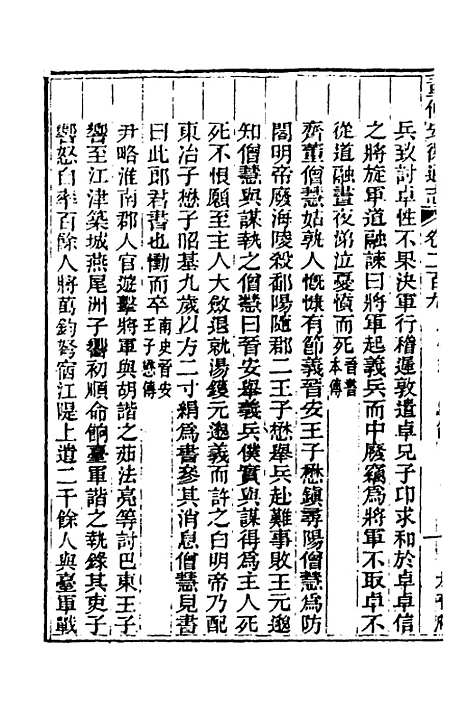 兵致討卓性不果決軍行稽遲敦遣卓兄子卬求和於卓卓信
之將旋軍道融諫曰將軍起義兵而中廢竊為將軍不取卓不
從道融晝夜俤泣憂憤而死晉書本傳
齊董僧慧姑孰人慨慷有節義晉安王子懋鎮尋陽僧慧為防
閤明帝廢海陵殺鄱陽隨郡二王子懋舉兵赴難事敗王元邈
知僧慧與謀執之僧慧曰晉安舉義兵僕實與謀得為主人死
死不恨願至主人大斂退就湯鑊元邈義而許之白明帝乃配
東冶子懋子昭基九歲以方二寸絹為書參其消息僧慧見書
曰此郎君書也慟而卒南史晉安王子懋傳
尹略淮南郡人官遊擊將軍與胡諧之茹法亮等討巴東王子
響至江津築城燕尾洲子響初順命餉臺軍諧之執錄其吏子
響怒自率百餘人將萬鈞弩宿江隄上道二千餘人與臺軍戰